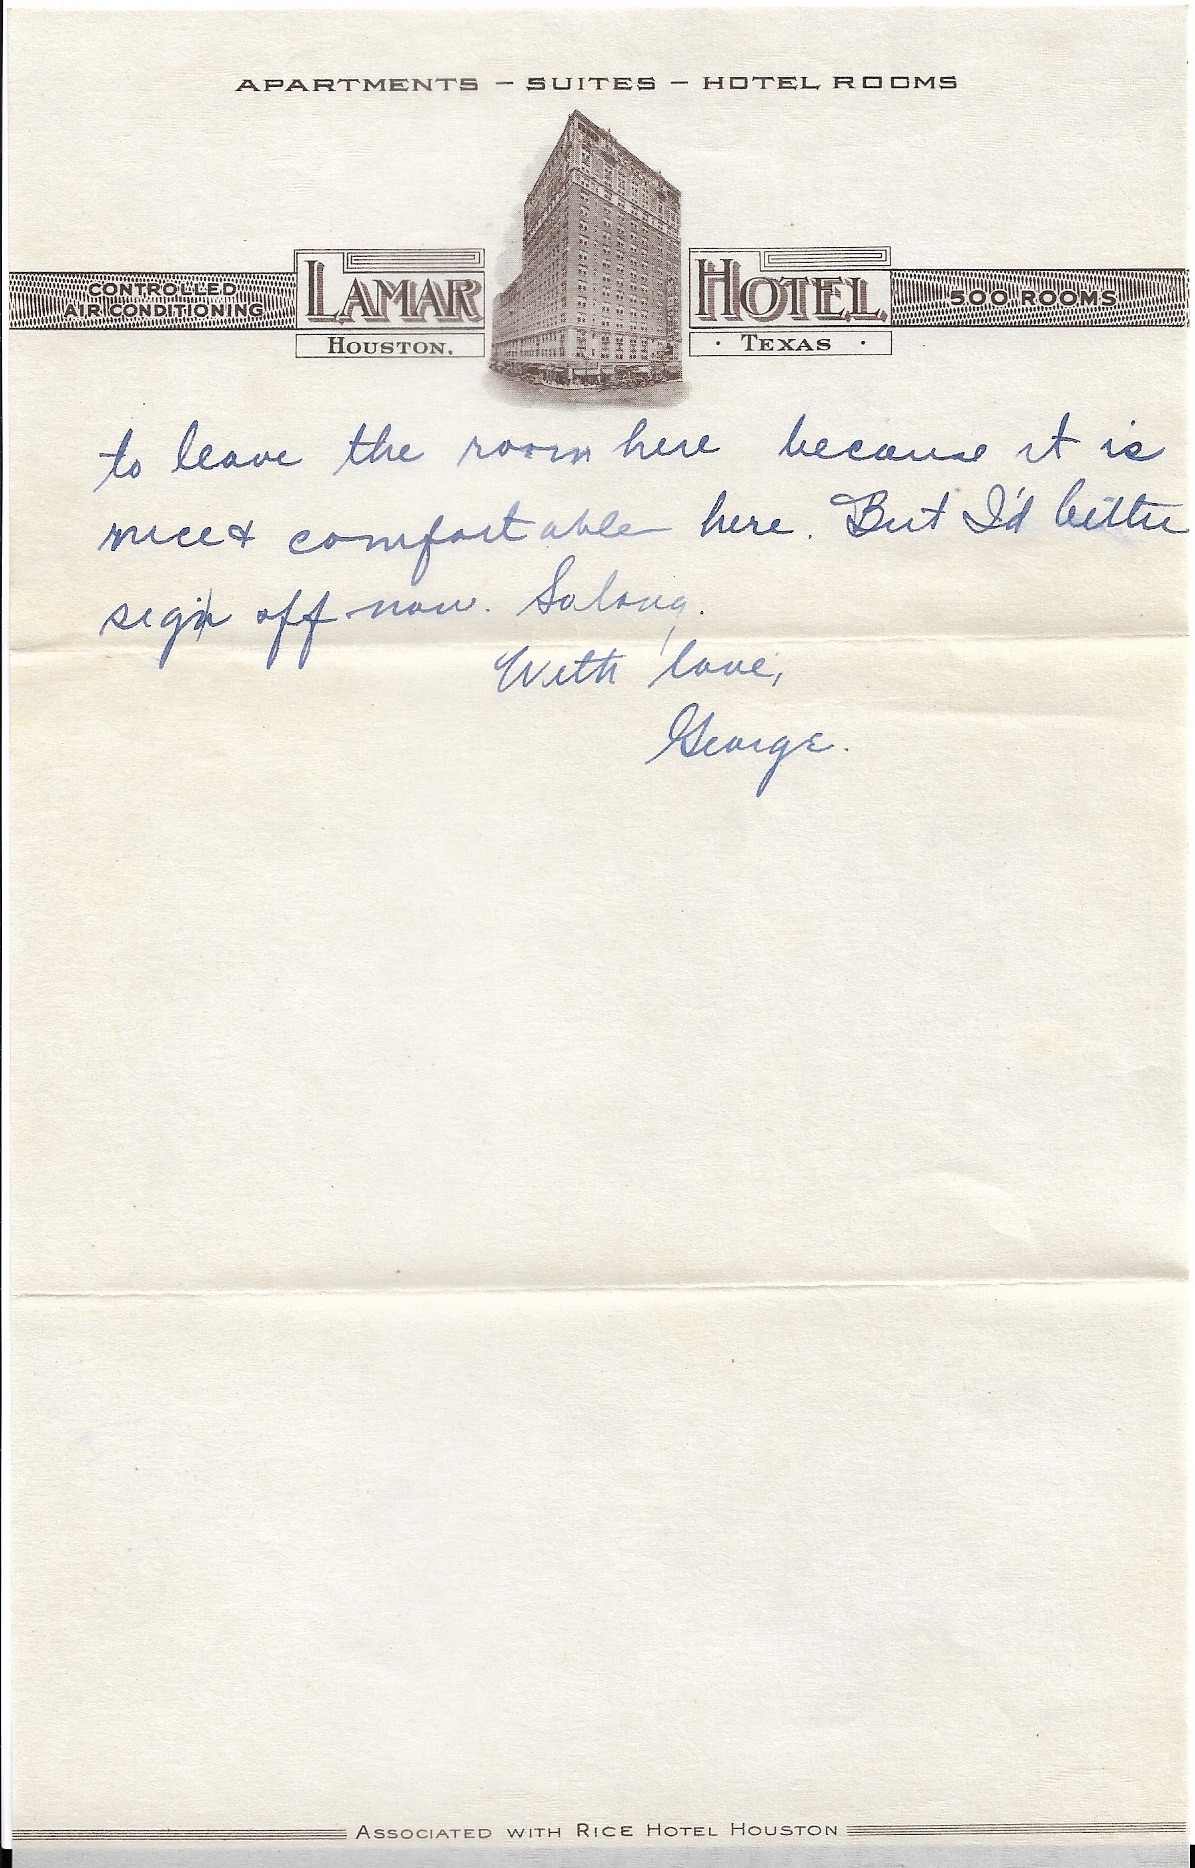 APARTMENTS – SUITES – HOTEL ROOMS
CONTROLLED
AIR CONDITIONING
LAMAR HOTEL
500 ROOMS
HOUSTON. · TEXAS ·
to leave the room here because it is
nice & comfortable here. But I'd better
sign off now. So long.
With love,
George.
ASSOCIATED WITH RICE HOTEL HOUSTON